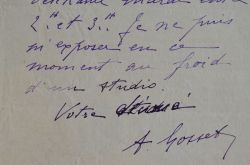 2h et 3h. Je ne puis
m'exposer en ce
moment au froid
d'un studio.
Votre
A Gosset